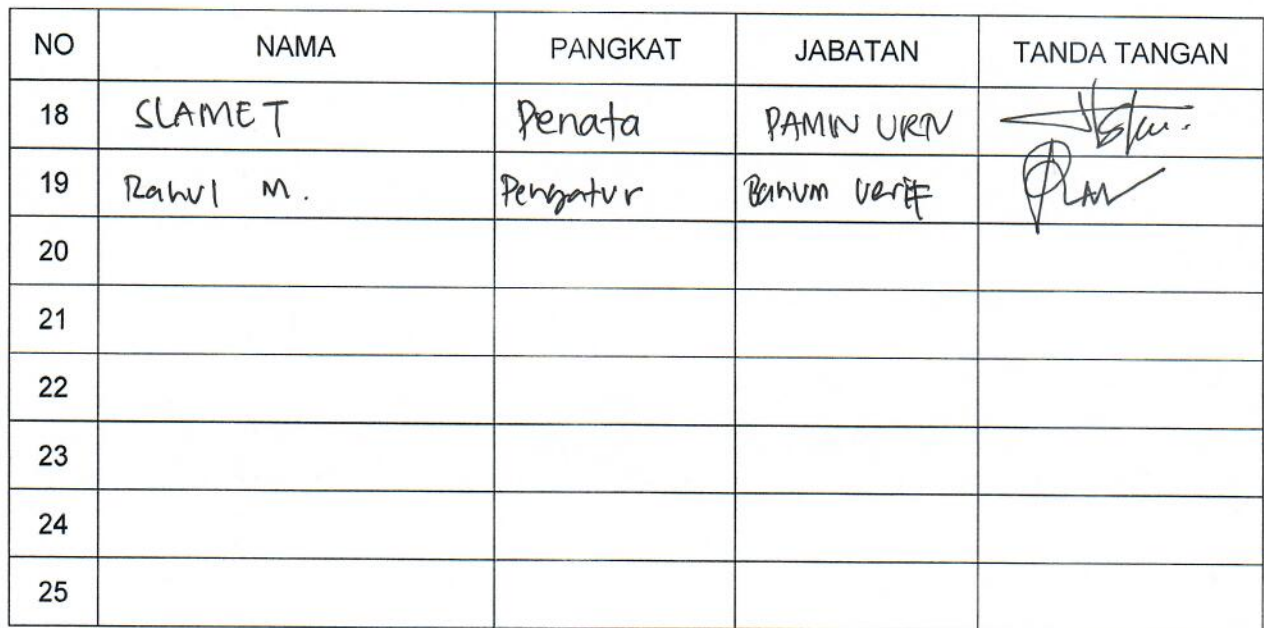 NO NAMA PANGKAT JABATAN TANDA TANGAN
18 SLAMET Penata PAMIN
19 Rahul M. Pengatur Banum Verif
20
21
22
23
24
25